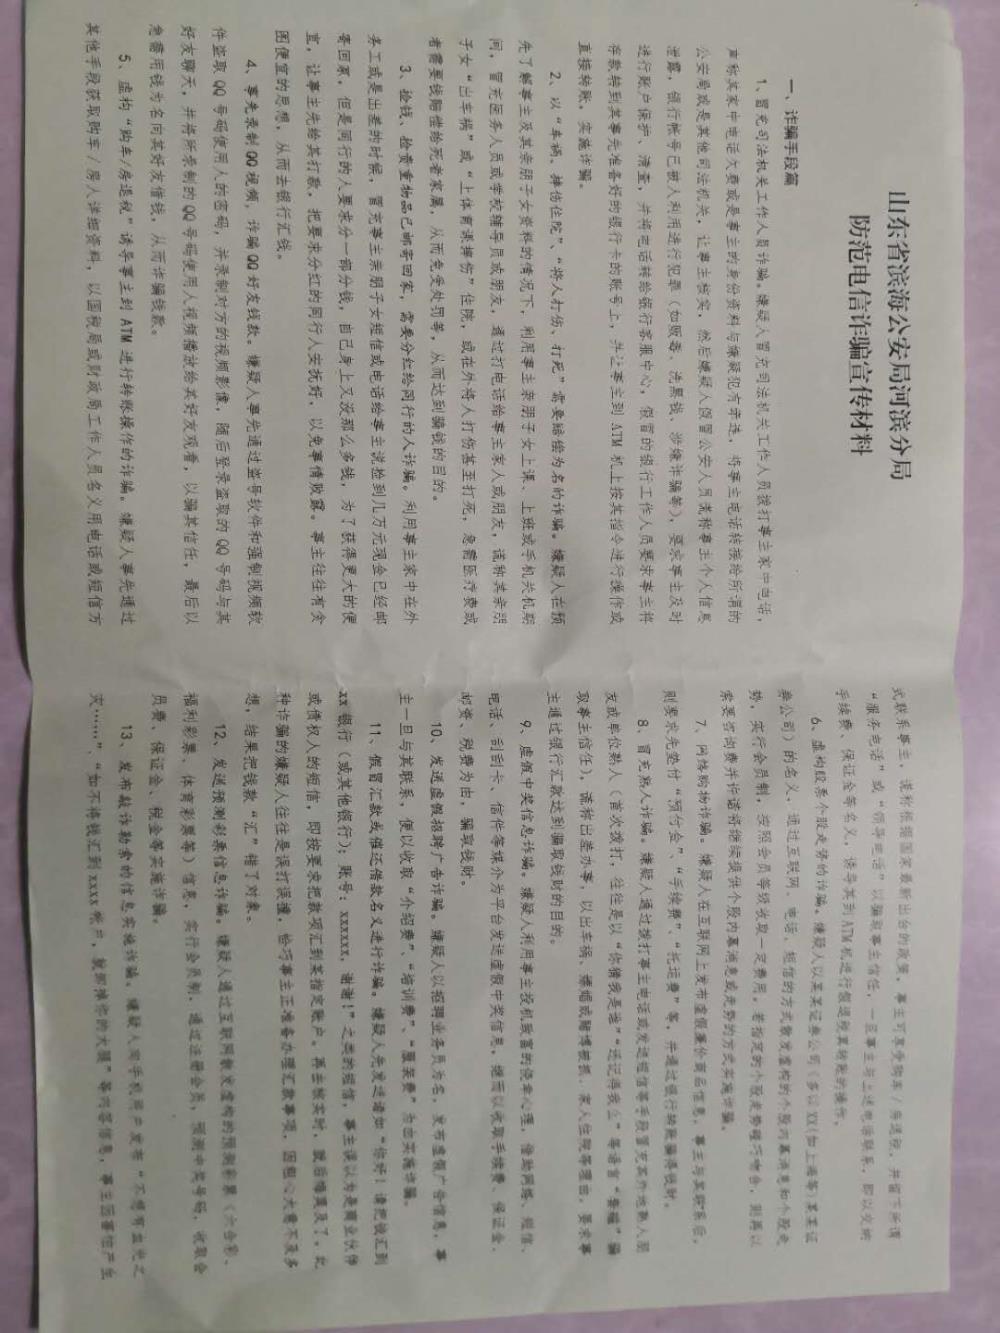 山东省滨海公安局河滨分局
防范电信诈骗宣传材料
一、诈骗手段篇
1、冒充司法机关工作人员诈骗。嫌疑人冒充司法机关工作人员拨打事主家中电话，
声称其家中电话欠费或是事主的身份资料与嫌疑犯有牵连，将事主电话转接给所谓的
公安局或是其他司法机关，让事主核实，然后嫌疑人假冒公安人员谎称事主个人信息
泄露，银行帐号已被人利用进行犯罪（如贩毒、洗黑钱、涉嫌诈骗等），要求事主及时
进行账户保护、清查，并将电话转给银行客服中心，假冒的银行工作人员要求事主将
存款转到其事先准备好的银行卡的账号上，并让事主到 ATM 机上按其指令进行操作或
直接转账，实施诈骗。
2、以“车祸、摔伤住院”、“将人打伤、打死”需要赔偿为名的诈骗。嫌疑人在预
先了解事主及其亲朋子女资料的情况下，利用事主亲朋子女上课、上班或手机关机期
间，冒充医务人员或学校辅导员或朋友，通过打电话给事主家人或朋友，谎称其亲朋
子女“出车祸”或“上体育课摔伤”住院，或在外将人打伤甚至打死，急需医疗费或
者需要钱赔偿给死者家属，从而免受处罚等，从而达到骗钱的目的。
3、捡钱、捡贵重物品已邮寄回家，需要分红给同行的人诈骗。利用事主家中在外
务工或是出差的时候，冒充事主亲朋子女短信或电话给事主说捡到几万元现金已经邮
寄回家，但是同行的人要求分一部分钱，自己身上又没那么多钱，为了获得更大的便
宜，让事主先给其打款，把要求分红的同行人安抚好，以免事情败露。事主往往有贪
图便宜的思想，从而去银行汇钱。
4、事先录制 QQ 视频，诈骗 QQ 好友钱款。嫌疑人事先通过盗号软件和强制视频软
件盗取 QQ 号码使用人的密码，并录制对方的视频影像，随后登录盗取的 QQ 号码与其
好友聊天，并将所录制的 QQ 号码使用人视频播放给其好友观看，以骗其信任，最后以
急需用钱为名向其好友借钱，从而诈骗钱款。
5、虚构“购车/房退税”诱导事主到 ATM 进行转账操作的诈骗。嫌疑人事先通过
其他手段获取购车/房人详细资料，以国税局或财政局工作人员名义用电话或短信方
式联系事主，谎称根据国家最新出台的政策，事主可享受购车/房退税，并留下所谓
“服务电话”或“领导电话”以骗取事主信任，一旦事主与上述电话联系，即以交纳
手续费、保证金等名义，诱导其到 ATM 机进行假退税真转账的操作。
6、虚构股票个股走势的诈骗。嫌疑人以某某证券公司（多以 XX(如上海等)某某证
券公司）的名义，通过互联网、电话、短信的方式散发虚构的个股内幕消息和个股走
势，实行会员制，按照会员等级收取一定费用，若指定的个股走势碰巧吻合，则再以
索要咨询费并许诺将继续提供个股内幕消息或走势的方式实施诈骗。
7、网络购物诈骗。嫌疑人在互联网上发布虚假廉价商品信息，事主与其联系后，
则要求先垫付“预付金”、“手续费”、“托运费”等，并通过银行转账骗得钱财。
8、冒充熟人诈骗。嫌疑人通过拨打事主电话或发送短信等手段冒充其外地熟人朋
友或单位熟人（首次拨打，往往是以“你猜我是谁”“还记得我么”等语言“套瓷”骗
取事主信任），谎称出差办事，以出车祸，嫖娼或赌博被抓，家人住院等理由，要求事
主通过银行汇款达到骗取钱财的目的。
9、虚假中奖信息诈骗。嫌疑人利用事主投机致富的侥幸心理，借助网络、短信、
电话、刮刮卡、信件等媒介为平台发送虚假中奖信息，继而以收取手续费、保证金、
邮资、税费为由，骗取钱财。
10、发送虚假招聘广告诈骗。嫌疑人以招聘业务员为名，发布虚假广告信息，事
主一旦与其联系，便以收取“介绍费”、“培训费”、“服装费”为由实施诈骗。
11、假冒汇款或催还借款名义进行诈骗。嫌疑人先发送诸如“你好！请把钱汇到
xx 银行（或其他银行）；账号：xxxxxx，谢谢！”之类的短信，事主误以为是商业伙伴
或债权人的短信，即按要求把款项汇到某指定账户。再去核实时，就后悔莫及了。此
种诈骗的嫌疑人往往是误打误撞，恰巧事主正准备办理汇款事项，因粗心大意不及多
想，结果把钱款“汇”错了对象。
12、发送预测彩票信息诈骗。嫌疑人通过互联网散发虚构的预测彩票（六合彩、
福利彩票、体育彩票等）信息，实行会员制，通过注册会员，预测中奖号码，收取会
员费、保证金、税金等实施诈骗。
13、发布敲诈勒索的信息实施诈骗。嫌疑人向手机用户发布“不想有血光之
灾……”、“如不将钱汇到 xxxx 帐户，就卸掉你的大腿”等内容信息，事主因害怕产生